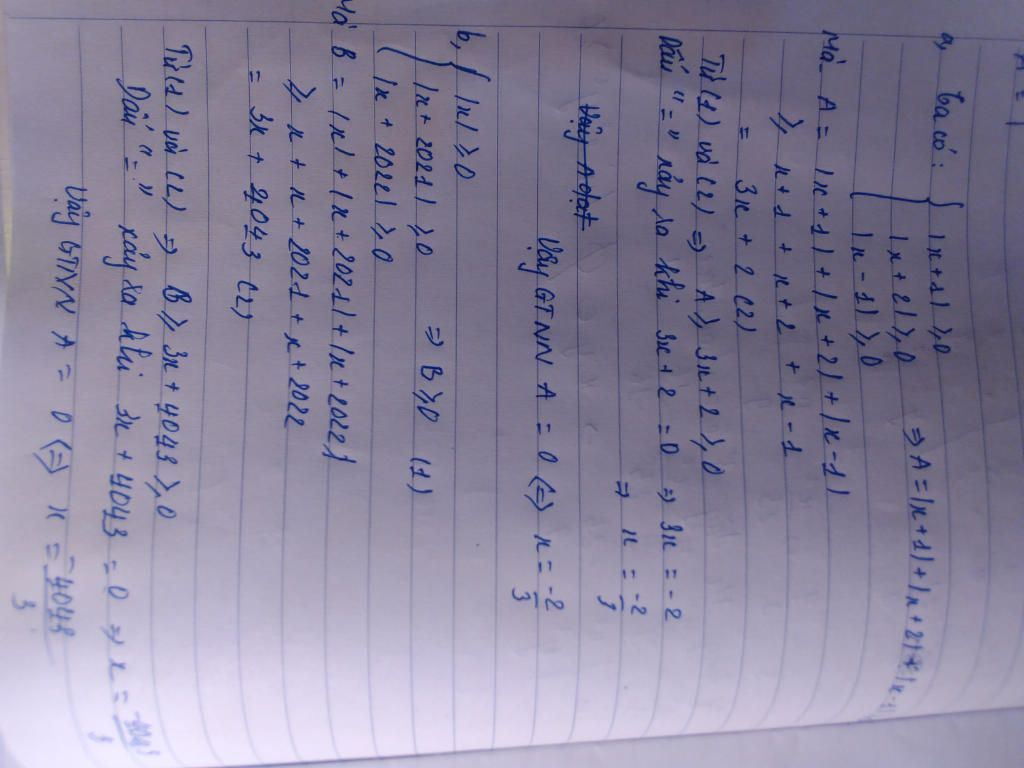 A = |
a, Ta có: { |x+1| ≥ 0
|x+2| ≥ 0 ⇒ A = |x+1| + |x+2| + |x-1
|x-1| ≥ 0
Mà A = |x+1| + |x+2| + |x-1|
≥ x+1 + x+2 + x-1
= 3x + 2 (2)
Từ (1) và (2) ⇒ A ≥ 3x+2 ≥ 0
Dấu "=" xảy ra khi 3x+2 = 0 ⇒ 3x = -2
⇒ x = -2/3
Vậy A đạt
Vậy GTNN A = 0 (=) x = -2/3
b, { |x| ≥ 0
|x+2021| ≥ 0 ⇒ B ≥ 0 (1)
|x+2022| ≥ 0
Mà B = |x| + |x+2021| + |x+2022|
≥ x + x + 2021 + x + 2022
= 3x + 4043 (2)
Từ (1) và (2) ⇒ B ≥ 3x + 4043 ≥ 0
Dấu "=" xảy ra khi 3x + 4043 = 0 ⇒ x =
Vậy GTNN A = 0 (=) x = -4043/3